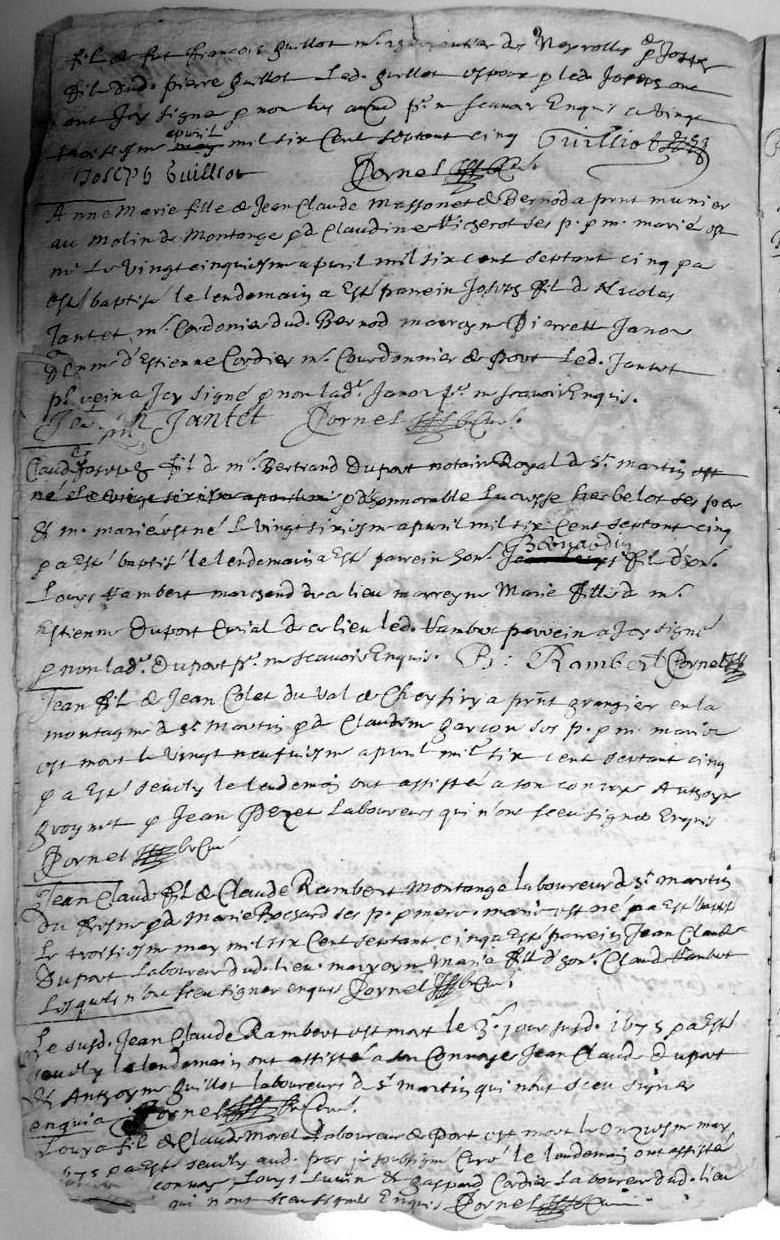 fil de feu françois guillot mᵉ de Neyrolles & Joseph
fil dud. pierre guillot Led. guillot espoux & led Joseph ont
ont Icy signé & non les pʳ ne scavoir Enquis ce vingt
troisiesme apuril mil six Cent septant cinq Guilliot
Joseph Guilliot Cornel
Anne Marie fille de Jean Claude Massonet de Bernod a pnt munier
au Molin de Montange & d Claudine ses p. & m. marié est
née Le Vingt cinquiesme apuril mil six cent septant cinq & a
esté baptisé le lendemain a Esté parrein Joseph fil de Nicolas
Jantet mᵉ Cordonier dud. Bernod marreyne Pierrette Janor
femme d'Estienne Cordier mᵉ Courdonnier de Port Led. Jantet
parrein a Icy signé & non ladᵗᵉ Janor pʳ ne scavoir Enquis.
Joseph Jantet Cornel
Claude Joseph fil de mᵉ Bertrand Duport notaire Royal de Sᵗ martin est
né & d honnorable Lucresse herbelot ses per
& m. mariés est né L vingt sixiesme apuril mil six Cent septant cinq
& a Esté baptisé le lendemain a Esté parrein honᵉ Bernardin fil d'honᵉ
Louys Rambert marchand de ce lieu marreyne Marie fille de mᵉ
Estienne Duport Curial de ce lieu led. Rambert parrein a Icy signé
& non ladᵗᵉ Duport pʳ ne scavoir Enquis. B: Rambert Cornel
Jean fil de Jean Colet du Val de Cheysiry a pnt grangier en la
montagne de Sᵗ Martin & d Claudine garcon ses p. & m. mariés
est mort le Vingt neufuiesme apuril mil six cent septant cinq
& a Esté sevely le lendemain ont assisté a son convoy Anthoyne
& Jean Peyet Laboureurs qui n'ont sceu signer Enquis
Cornel
Jean Claude fil de Claude Rambert Montange laboureur de Sᵗ martin
du fresne & d Marie Bossard ses p. & mere mariés est né & a Esté baptisé
Le troisiesme may mil six Cent septant cinq a Esté parrein Jean Claude
Duport Laboureur dud. lieu marreyne Marie fille d'honᵉ Claude Rambert
Lesquels n'ont sceu signer enquis Cornel
Le susd. Jean Claude Rambert est mort le 3ᵉ jour susd. 1675 & a Esté
sevely le lendemain ont assisté a son Convoye Jean Claude Duport
& Anthoyne guillot laboureurs de Sᵗ martin qui n'ont sceu signer
enquis Cornel
Louys fil de Claude Morel Laboureur de Port est mort le Onziesme may
1675 & a Esté sevely aud. par je soubsigné Curé le lendemain ont assisté
convoy Louys & Gaspard Cordier Laboureur dud. lieu
qui n'ont sceu signer Enquis Cornel